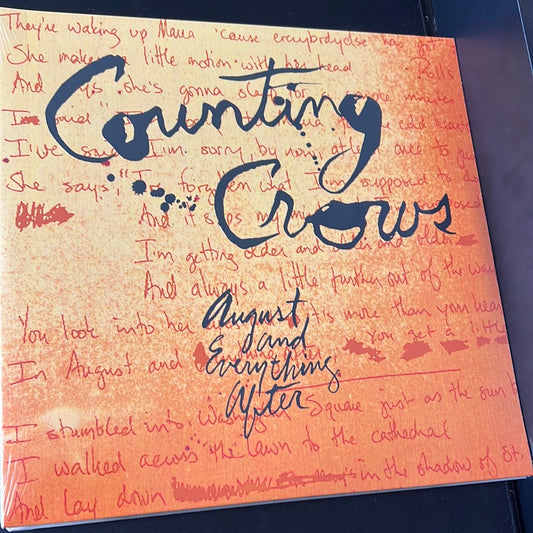 They're waking up Maria 'cause everybody else has got
She makes little motion with her head
Rolls
And says she's gonna sleep for a couple minutes
Counting
I'm sorry by now
She says, I'm forgetting what I'm supposed to
Crows
And it slips my mind
I'm getting older and older and older
And always a little further out of the way
You look into her it's more than your heart
August
and
Everything
After
You get a little
In August and
I stumbled into Washington Square just as the sun
I walked across the lawn to the cathedral
And lay down in the shadow of St.